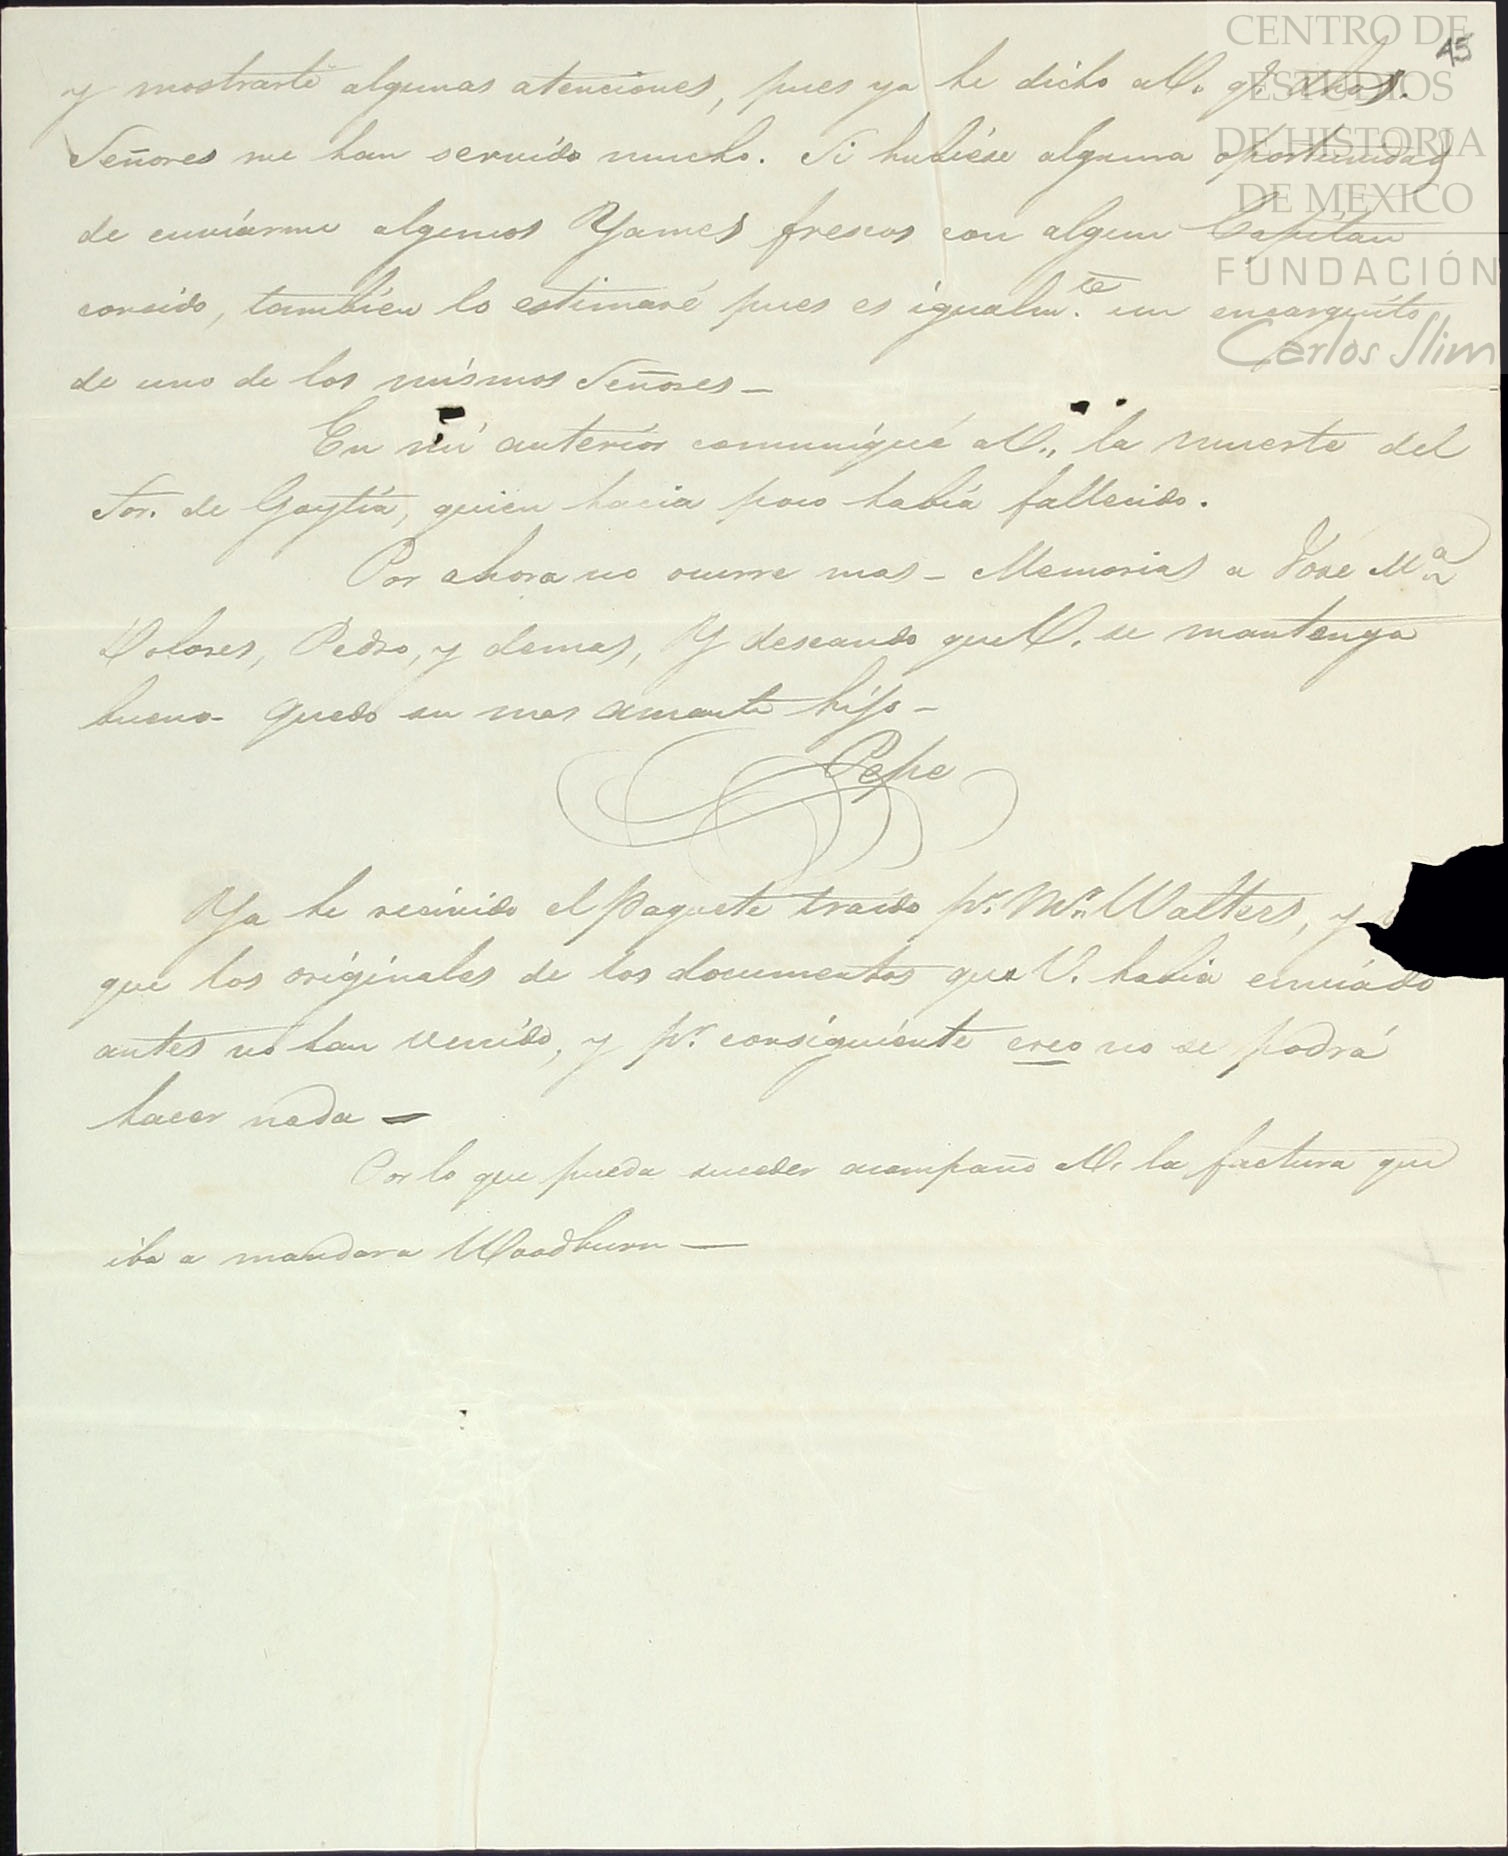 45
CENTRO DE
ESTUDIOS
DE HISTORIA
DE MEXICO
FUNDACIÓN
Carlos Slim
y mostrarle algunas atenciones, pues ya he dicho a V. qe. dhos.
Señores me han servido mucho. Si hubiése alguna oportunidad
de enviárme algunos Yames frescos con algun Capitan
conocido, tambien lo estimaré pues es igualm.te un encarguito
de uno de los mismos Señores_
En mi anterior comuniqué a V., la muerte del
Sor. de Goytia, quien hacia poco había fallecido.
Por ahora no ocurre mas_ Memorias a Jose Ma
Dolores, Pedro, y demas, Y deseando que V. se mantenga
bueno- quedo su mas amante hijo_
Pepe
Ya he recivido el paquete traído pr. Mr. Walters, y
que los originales de los documentos que V. habia enviádo
antes no han venido, y pr. consiguiénte creo no se podrá
hacer nada_
Por lo que pueda suceder acompaño a V. la factura que
iba a mandar a Woodburn_